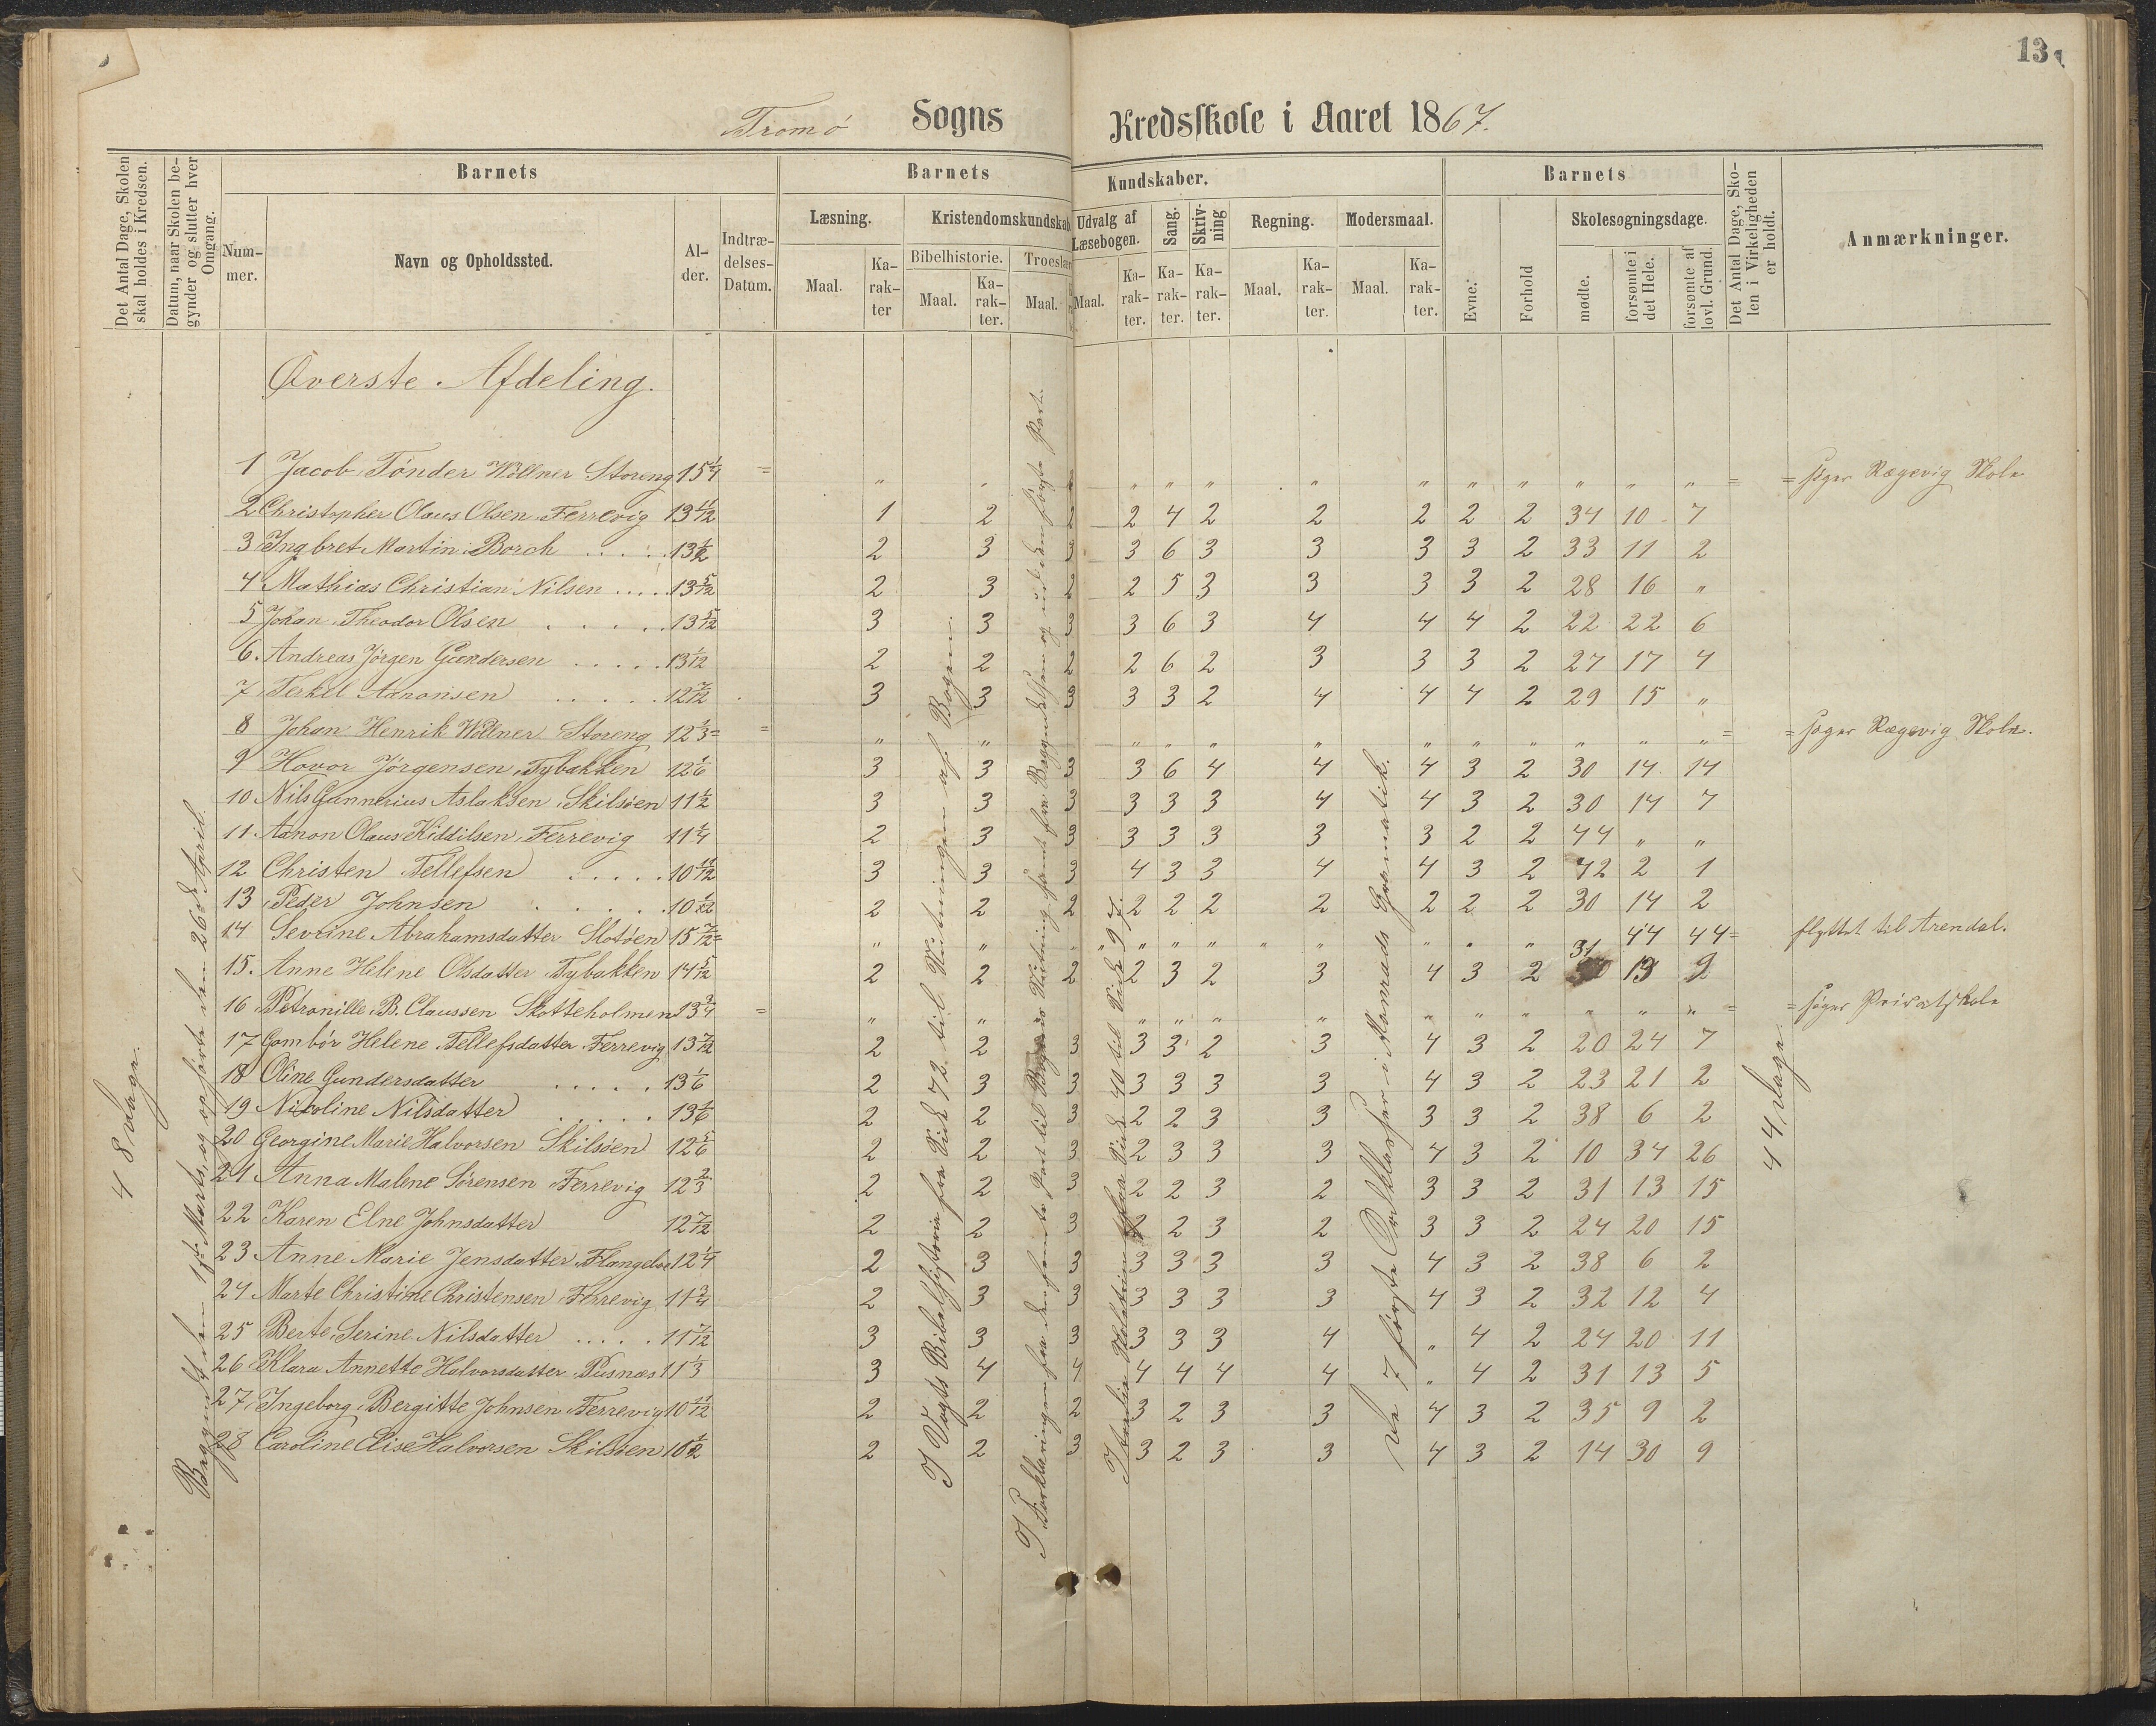 13
Tromø Sogns Kredsskole i Aaret 1867.
Det Antal Dage, Skolen skal holdes i Kredsen.
Datum, naar Skolen begynder og slutter hver Omgang.
Barnets
Barnets Kundskaber.
Barnets
Det Antal Dage, Skolen i Virkeligheden er holdt.
Anmærkninger.
Nummer.
Navn og Opholdssted.
Alder.
Indtrædelses-Datum.
Læsning.
Kristendomskundskab
Udvalg af Læsebogen.
Sang.
Skrivning
Regning.
Modersmaal.
Evne.
Forhold
Skolesøgningsdage.
Bibelhistorie.
Troeslære
Maal. Karakter Maal. Karakter. Maal. Maal. Karakter. Karakter. Karakter. Maal. Karakter. Maal. Karakter.
mødte. forsømte i det Hele. forsømte af lovl. Grund.
Øverste Afdeling.
1 Jacob Tønder Wöllner Storeng 15 1/4 = " " " " " " " " " " " " = = søger Rægevig Skole
2 Christopher Olaus Olsen Færrevig 13 11/12 1 2 2 2 4 2 2 2 2 2 34 10 7
3 Ingbret Martin Borch 13 1/2 2 3 3 3 6 3 3 3 3 2 33 11 2
4 Mathias Christian Nilsen 13 5/12 2 3 2 2 5 3 3 3 3 2 28 16 "
5 Johan Theodor Olsen 13 5/12 3 3 3 3 6 3 4 4 4 2 22 22 6
6. Andreas Jørgen Gundersen 13 1/12 2 2 2 2 6 2 3 3 3 2 27 17 4
7 Terkel Aanonsen 12 7/12 3 3 3 3 3 2 4 4 4 2 29 15 "
8 Johan Henrik Wöllner Storeng 12 1/3 = = " " " " " " " " " " " " = = søger Rægevig Skole.
9 Hovor Jørgensen Tybakken 12 1/6 3 3 3 3 6 4 4 4 3 2 30 14 14
10 Nils Gunnerius Aslaksen Skilsøen 11 1/2 3 3 3 3 3 3 4 4 3 2 30 14 7
11 Aanon Olaus Kiddilsen Færrevig 11 1/4 2 3 3 3 3 3 3 3 2 2 44 " "
12 Christen Tellefsen 10 11/12 3 3 3 4 3 3 4 4 3 2 42 2 1
13 Peder Johnsen 10 1/12 2 2 2 2 2 2 2 2 2 2 30 14 2
14 Sevrine Abrahamsdatter Slotøen 15 7/12 = " " " " " " " " " " " 44 44 = flyttet til Arendal.
15. Anne Helene Olsdatter Tybakken 14 5/12 2 2 2 2 3 2 3 4 3 2 31 13 2
16 Petronille B. Claussen Skotteholmen 13 3/4 = " " " " " " " " " " " = = søger Privatskole
17 Gombør Helene Tellefsdatter Færrevig 13 7/12 2 2 3 3 3 2 3 4 3 2 20 24 7
18 Oline Gundersdatter 13 1/6 2 3 3 3 3 3 3 4 3 2 23 21 2
19 Nicoline Nilsdatter 13 1/6 2 2 3 2 2 3 3 3 3 2 38 6 2
20 Georgine Marie Halvorsen Skilsøen 12 5/6 2 2 3 2 3 3 3 4 3 2 10 34 26
21 Anna Malene Sørensen Færrevig 12 2/3 2 2 3 2 2 3 2 3 3 2 31 13 15
22 Karen Elne Johnsdatter 12 7/12 2 2 3 2 2 3 2 3 3 2 24 20 15
23 Anne Marie Jensdatter 12 1/4 2 3 3 3 3 3 3 4 3 2 38 6 2
24 Marte Christine Christensen Færrevig 11 3/4 2 3 3 3 3 3 3 4 3 2 32 12 4
25 Berte Serine Nilsdatter 11 7/12 3 3 3 3 3 3 4 " 4 2 24 20 11
26 Klara Annette Halvorsdatter Pusnæs 11 1/3 3 4 4 4 4 4 4 " 4 2 31 13 5
27 Ingeborg Bergitte Johnsen Færrevig 10 11/12 2 2 2 3 2 3 3 4 3 2 35 9 2
28 Caroline Elise Halvorsen Skilsøen 10 1/2 2 2 3 3 2 3 3 4 3 2 14 30 9
48 Dage.
Begyndt den 1ste Marts, og ophørte den 26de April.
I Vogts Bibelhistorie fra Side 72 til Slutningen af Bogen.
I Forklaringen fra den femte Part til Bogens Slutning samt fra Begyndelsen og ud den første Part.
Side 40 til Side 97.
De 7 første Ordklasser i Monrads Grammatik.
44 Dage.